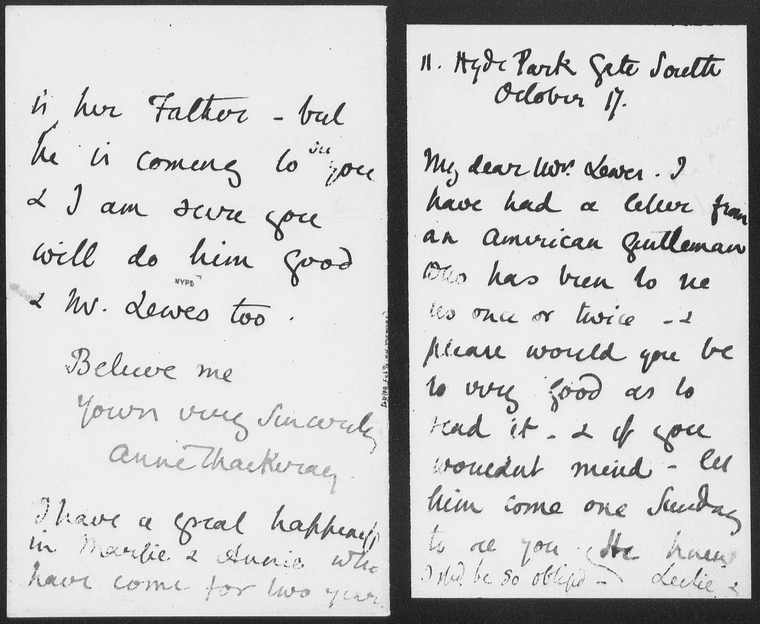 11. Hyde Park Gate South
October 17.
My dear Mrs. Lewes. I
have had a letter from
an American gentleman
who has been to see
us once or twice - &
please would you be
so very good as to
read it - & if you
wouldnt mind - let
him come one Sunday
to see you. He knew
I shd. be so obliged - Leslie &
is her Father - but
he is coming to see you
& I am sure you
will do him good
NYPB
& Mr. Lewes too.
Believe me
Yours very Sincerely
Anne Thackeray.
I have a great happiness
in Margie & Annie who
have come for two years